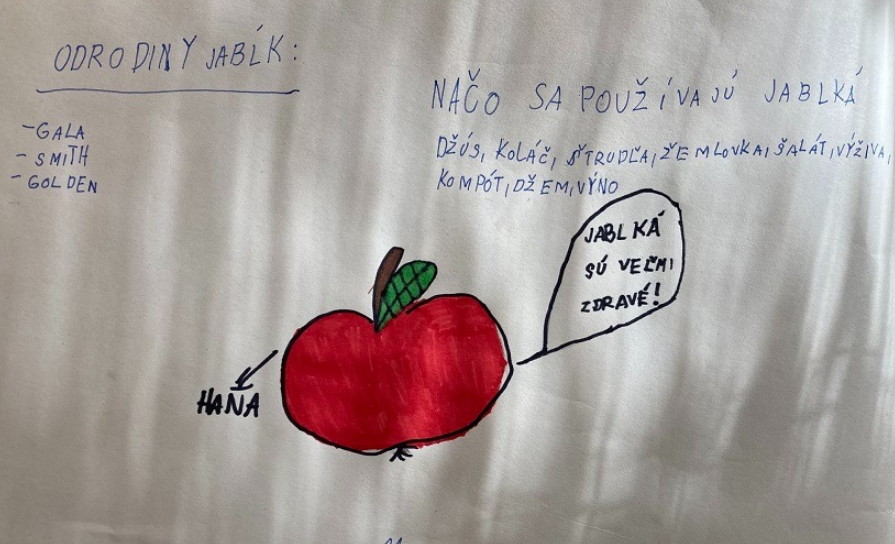 ODRODINY JABĹK:
-GALA
-SMITH
-GOLDEN
NAČO SA POUŽÍVAJÚ JABLKÁ
DŽÚS, KOLÁČ, ŠTRUDĽA, ŽEMLOVKA, ŠALÁT, VÝŽIVA,
KOMPÓT, DŽEM, VÝNO
JABLKÁ
SÚ VEĽMI
ZDRAVÉ!
HANA